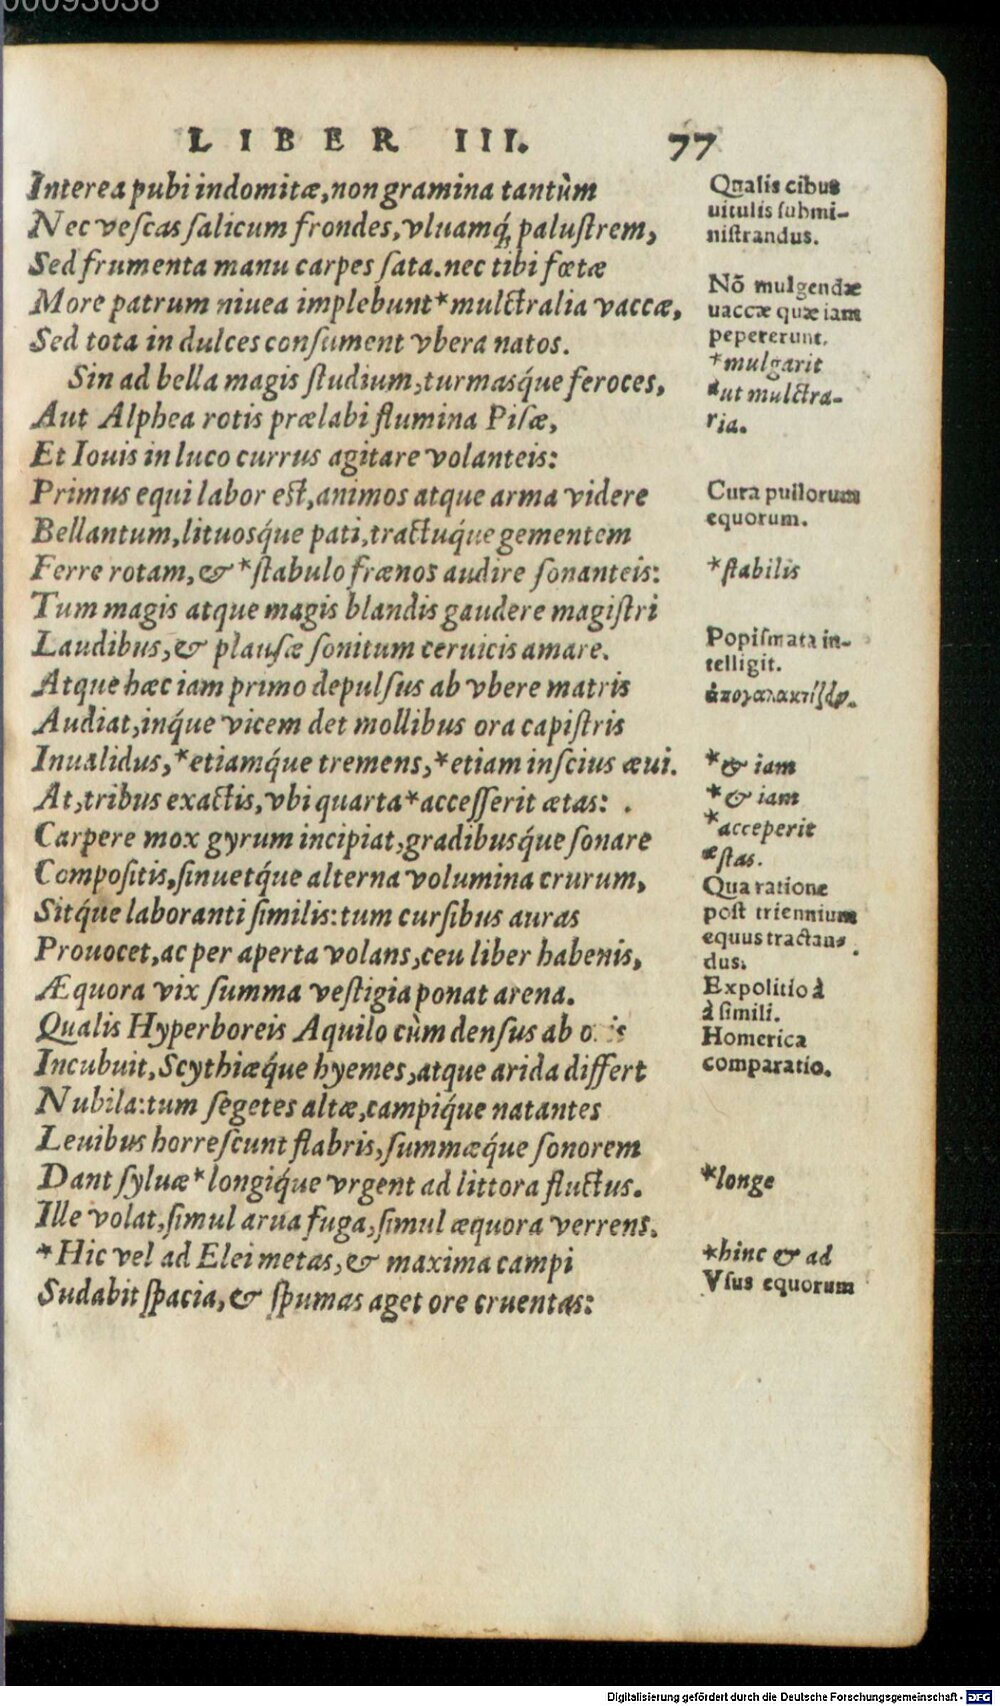 00093038
LIBER III. 77
Interea pubi indomitæ, non gramina tantùm
Nec vescas salicum frondes, vluamq́; palustrem,
Sed frumenta manu carpes sata. nec tibi fœtæ
More patrum niuea implebunt *mulctralia vaccæ,
Sed tota in dulces consument vbera natos.
Sin ad bella magis studium, turmasq́ue feroces,
Aut Alphea rotis prælabi flumina Pisæ,
Et Iouis in luco currus agitare volanteis:
Primus equi labor est, animos atque arma videre
Bellantum, lituosq́ue pati, tractuq́ue gementem
Ferre rotam, & *stabulo frænos audire sonanteis:
Tum magis atque magis blandis gaudere magistri
Laudibus, & plausæ sonitum ceruicis amare.
Atque hæc iam primo depulsus ab vbere matris
Audiat, inq́ue vicem det mollibus ora capistris
Inualidus, *etiamq́ue tremens, *etiam inscius æui.
At, tribus exactis, vbi quarta *accesserit ætas:
Carpere mox gyrum incipiat, gradibusq́ue sonare
Compositis, sinuetq́ue alterna volumina crurum,
Sitq́ue laboranti similis: tum cursibus auras
Prouocet, ac per aperta volans, ceu liber habenis,
Æquora vix summa vestigia ponat arena.
Qualis Hyperboreis Aquilo cùm densus ab
Incubuit, Scythiæq́ue hyemes, atque arida differt
Nubila: tum segetes altæ, campiq́ue natantes
Leuibus horrescunt flabris, summæq́ue sonorem
Dant syluæ *longiq́ue vrgent ad littora fluctus.
Ille volat, simul arua fuga, simul æquora verrens.
*Hic vel ad Elei metas, & maxima campi
Sudabit spacia, & spumas aget ore cruentas:
Qualis cibus
uitulis submi-
nistrandus.
Nõ mulgendæ
uaccæ quæ iam
pepererunt.
*mulgarit
aut mulctra-
ria.
Cura pullorum
equorum.
*stabilis
Popismata in-
telligit.
*& iam
*& iam
*acceperit
æstas.
Qua ratione
post triennium
equus tractan-
dus.
Expolitio à
à simili.
Homerica
comparatio.
*longe
*hinc & ad
Vsus equorum
Digitalisierung gefördert durch die Deutsche Forschungsgemeinschaft - DFG